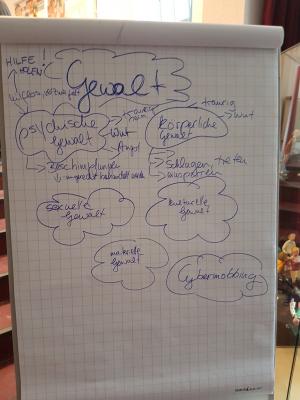 HILFE!
HOLEN!
Gewalt
psychische
Gewalt
traurig
Wut
Angst
körperliche
Gewalt
traurig
Wut
Beschimpfungen
ungerecht behandelt werden
schlagen, treten
sexuelle
Gewalt
kulturelle
Gewalt
materielle
Gewalt
Cybermobbing